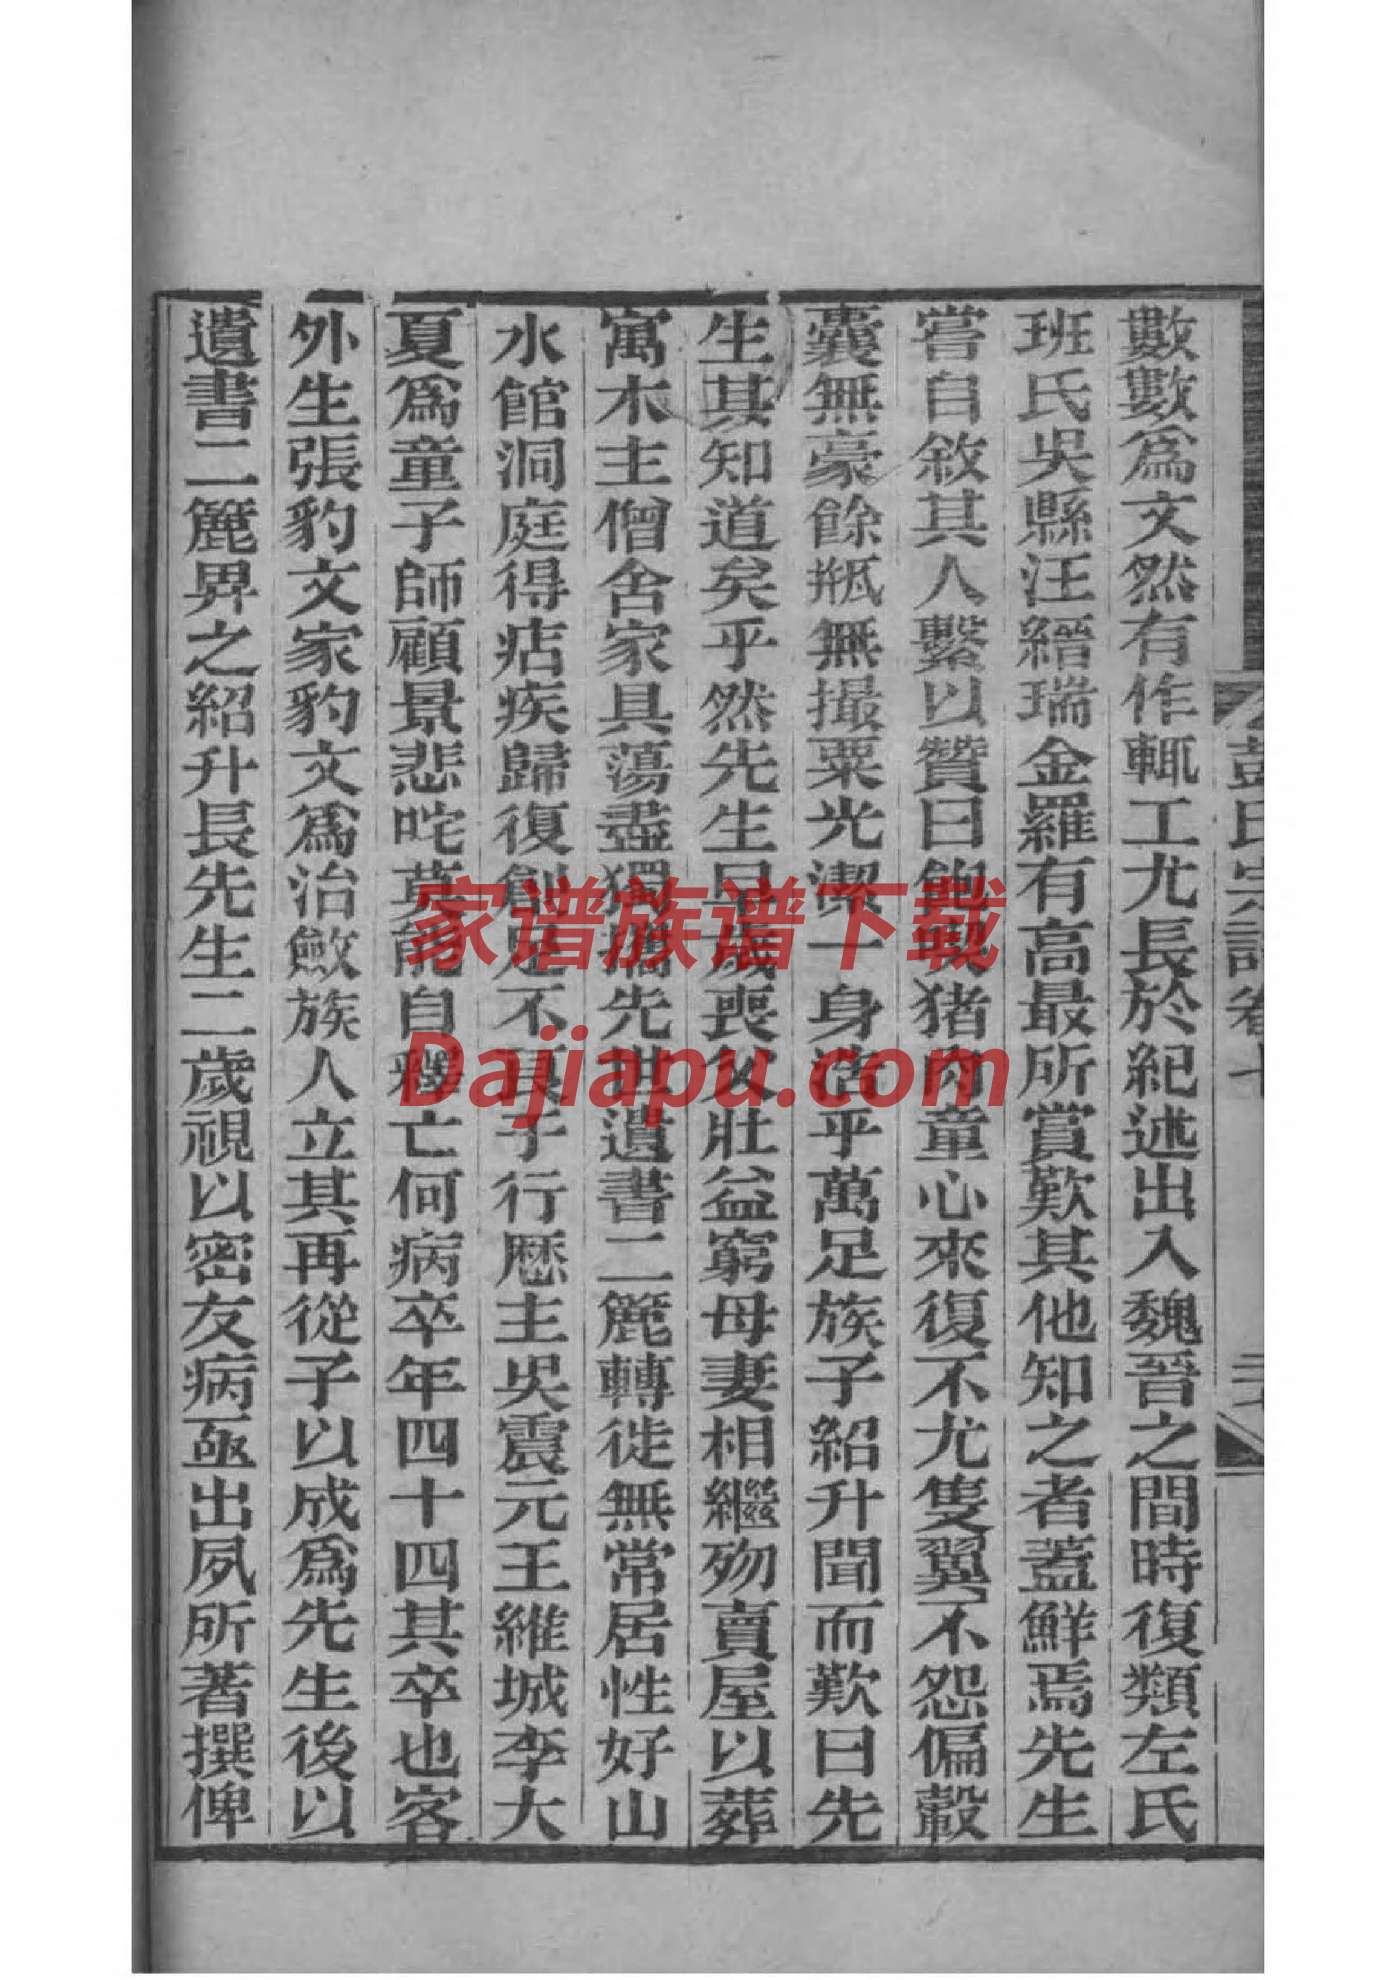 數數爲文然有作輒工尤長於紀述出入魏晉之間時復類左氏
班氏吳縣汪縉瑞金羅有高最所賞歎其他知之者蓋鮮焉先生
嘗自敘其人繫以贊曰飽喫猪肉童心來復不尤隻翼不怨偏轂
囊無豪餘甁無撮粟光潔一身浩乎萬足族子紹升聞而歎曰先
生其知道矣乎然先生早歲喪父壯益窮母妻相繼歿賣屋以葬
寓木主僧舍家具蕩盡獨攜先世遺書二簏轉徙無常居性好山
水館洞庭得痁疾歸復創足不良于行厯主吳震元王維城李大
夏爲童子師顧景悲咤莫能自釋亡何病卒年四十四其卒也客
外生張豹文家豹文爲治斂族人立其再從子以成爲先生後以
遺書二簏畀之紹升長先生二歲視以密友病亟出夙所著撰俾
彭氏宗譜卷七
家谱族谱下载
Dajiapu.com